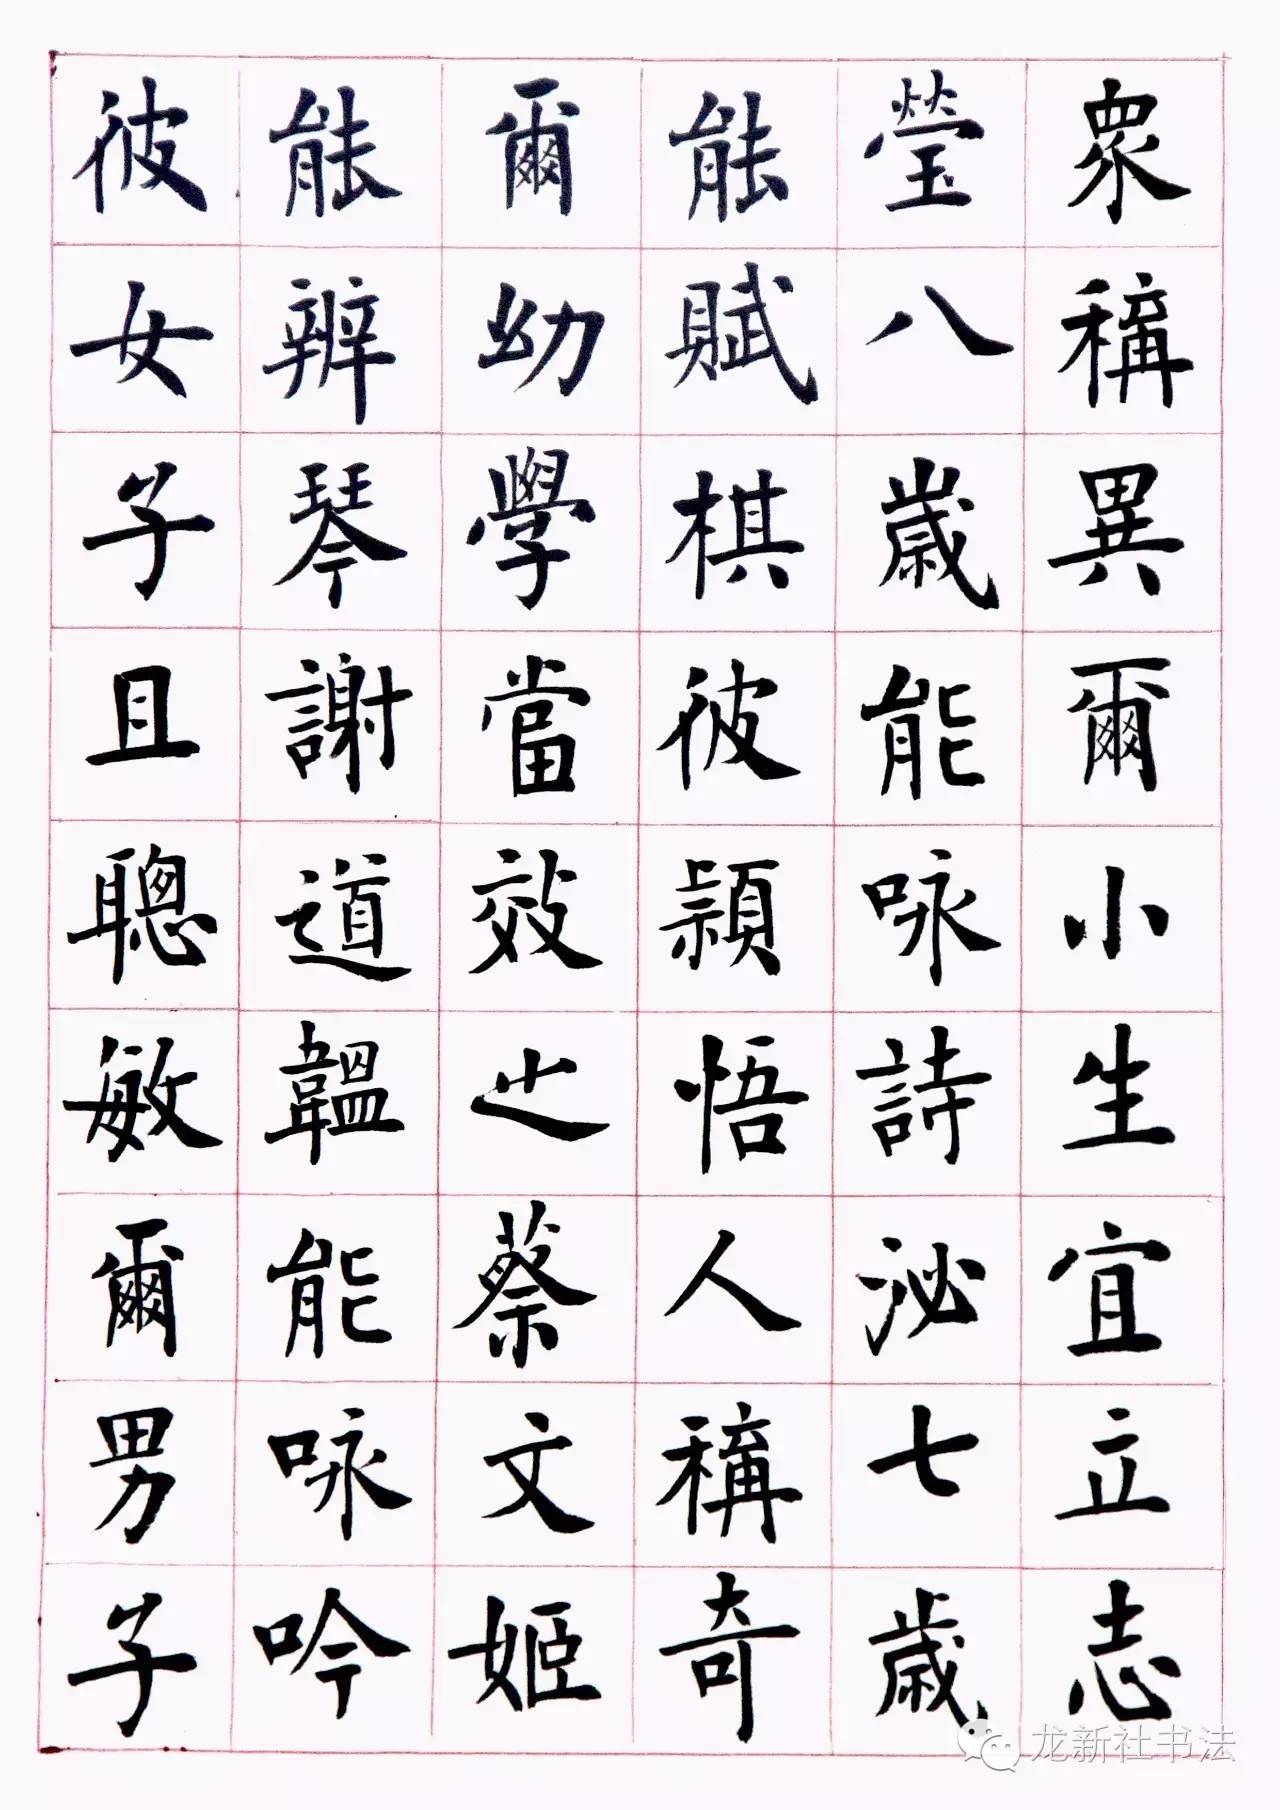 眾稱異爾小生宜立志
瑩八歲能咏詩泌七歲
能賦棋彼穎悟人稱奇
爾幼學當效之蔡文姬
能辨琴謝道韞能咏吟
彼女子且聰敏爾男子
龙新社书法